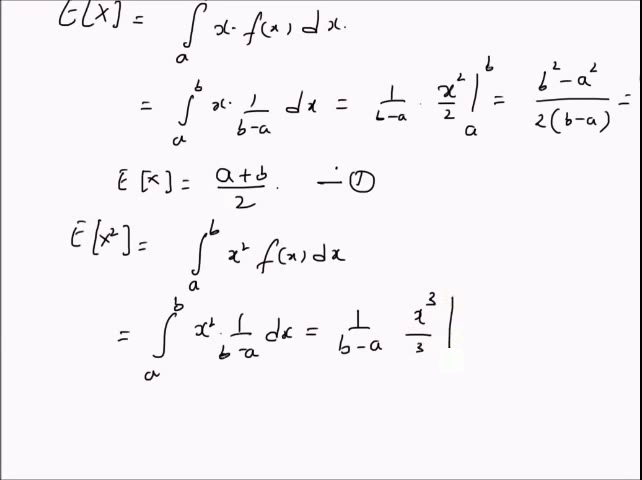 E[X] = ∫ₐ x · f(x) dx.
= ∫ₐᵇ x · 1/(b-a) dx = 1/(b-a) · x²/2 |ₐᵇ = (b² - a²)/(2(b-a)) =
E[X] = (a+b)/2 . — ①
E[X²] = ∫ₐᵇ x² f(x) dx
= ∫ₐᵇ x² · 1/(b-a) dx = 1/(b-a) x³/3 |